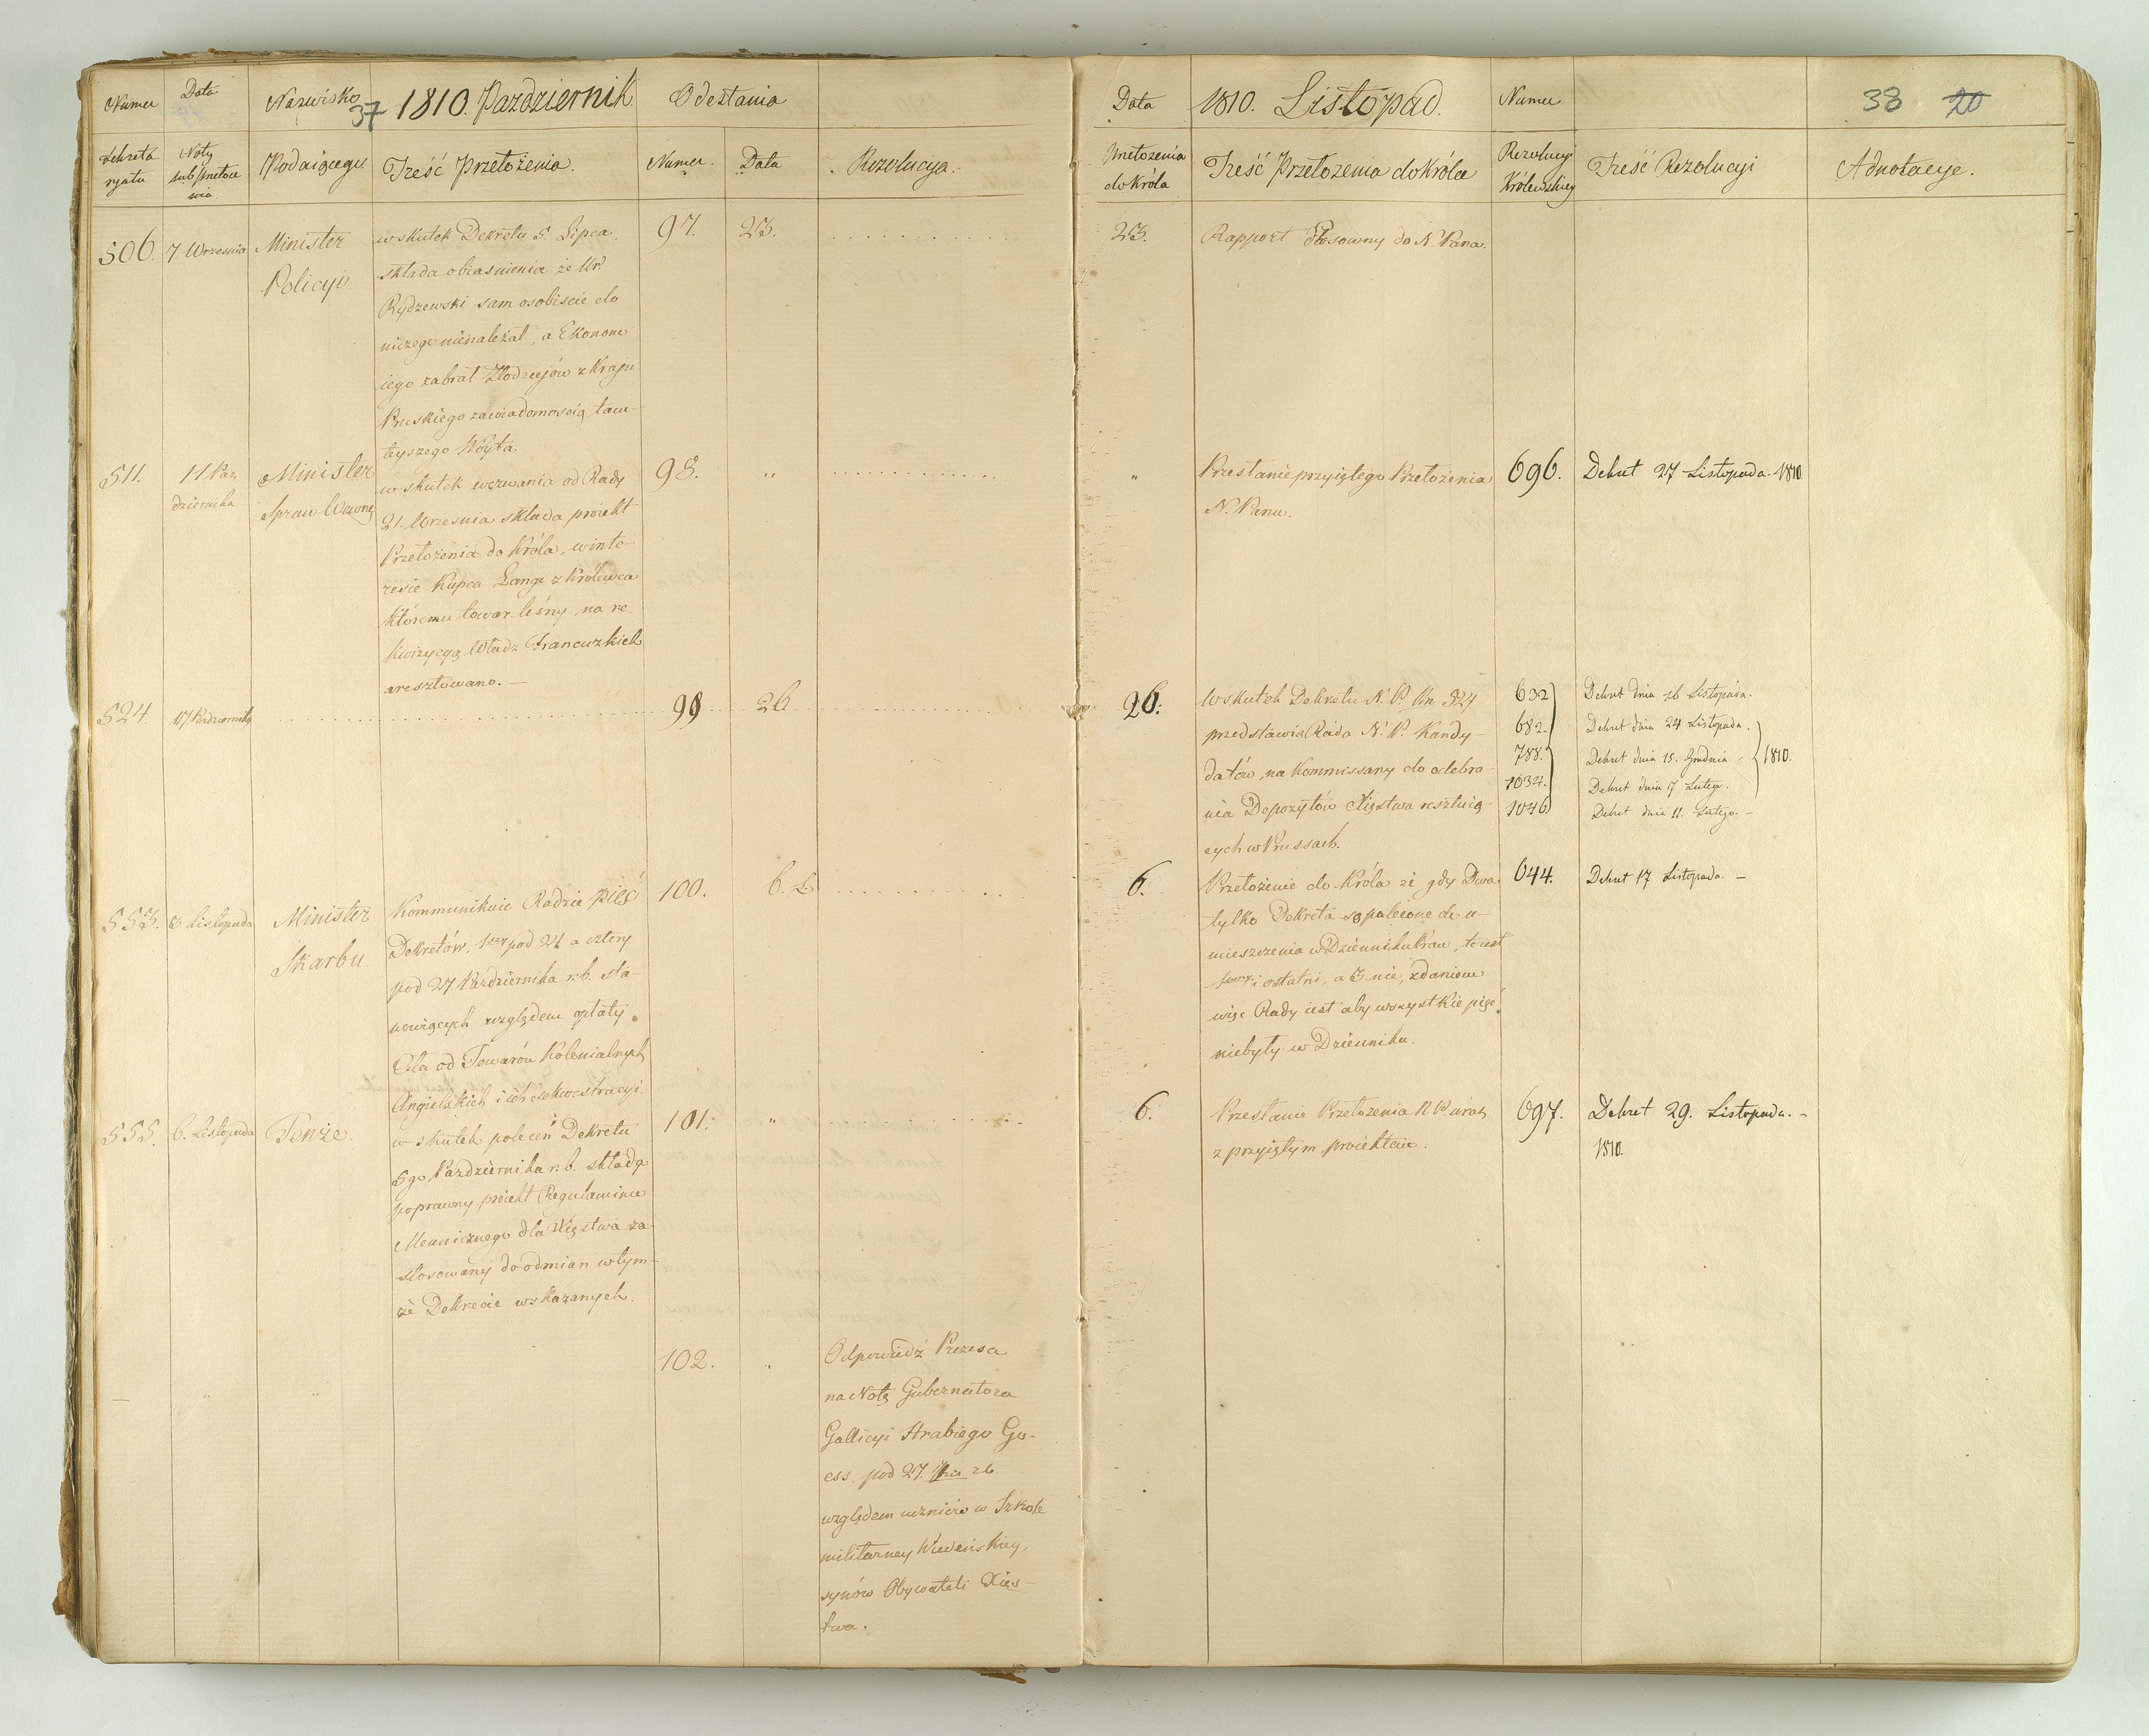 Numer
Data
Nazwisko
37
1810. Pazdziernik
Odesłania
Sekreta
ryatu
Noty
lub Przełoże
nia.
Podaiącego
Treść Przełożenia.
Numer.
Data
Rezolucya.
506.
7 Wrzesnia
Minister
Policyi
w skutek Dekretu 5. Lipca
składa obiasnienia że Ur:
Rydzewski sam osobiscie do
niczego nienależał, a Ekonom
iego zabrał Złodziejów z Kraju
Pruskiego za wiadomoscią tam-
teyszego Woyta.
97.
23.
511.
11 Paz
dziernika
Minister
Spraw Wewnę
w skutek wezwania od Rady
21. Wrzesnia składa proiekt
Przełożenia do Króla, winte-
ressie Kupca Lange z Królewca
któremu towar leśny na re
kwizycyą Władz Francuzkich
aresztowano. —
98.
"
524.
17 Pazdziernika
99
26
553.
3. Listopada
Minister
Skarbu
Kommunikuie Radzie pięć
Dekretów, 1szy pod 24 a cztery
pod 27. Pazdziernika r.b. sta-
nowiących względem opłaty
Cła od Towarów Kolonialnych
Angielskich i ich sekwestracyi
100.
6. L.
555.
6. Listopada
Tenże.
w skutek poleceń Dekretu
5go Pazdziernika r.b. składa
poprawny proiekt Regulaminu
Menniczego dla Xięstwa za-
stosowany do odmian w tym-
że Dekrecie wskazanych.
101.
"
102.
"
Odpowiedź Prezesa
na Notę Gubernatora
Gallicyi Hrabiego Go-
ess. pod 27. r.b.
względem uczniów w Szkole
militarney Wiedeńskiey,
synów Obywateli Xięs-
twa.
Data
1810. Listopad.
Numer
38 20
Przełożenia
do Króla
Treść Przełożenia do Króla
Rezolucyi
Królewskiey
Treść Rezolucyi
Adnotacye.
23.
Rapport stosowny do N. Pana.
"
Przesłanie przyiętego Przełożenia
N. Panu.
696.
Dekret 27 Listopada. 1810
26.
W skutek Dekretu N. P. Nr 324
przedstawia Rada N. P. Kandy-
datów, na Kommissarzy do odebra-
nia Depozytów Xięstwa resztuią-
cych w Prussach.
632
682.
788.
1034.
1046
Dekret dnia 16 Listopada.
Dekret dnia 24 Listopada.
Dekret dnia 15. Grudnia -
Dekret dnia 7 Lutego.
Dekret dnia 11. Lutego. -
1810.
6.
Przełożenie do Króla że gdy Dwa
tylko Dekreta są polecone do u-
mieszczenia w Dzienniku Praw, to iest
1wszy i ostatni, a 3. nie, zdaniem
więc Rady iest aby wszystkie pięć
niebyły w Dzienniku.
644.
Dekret 17 Listopada. -
6.
Przesłanie Przełożenia N. Pana wraz
z przyiętym proiektem.
697.
Dekret 29. Listopada. -
1810.